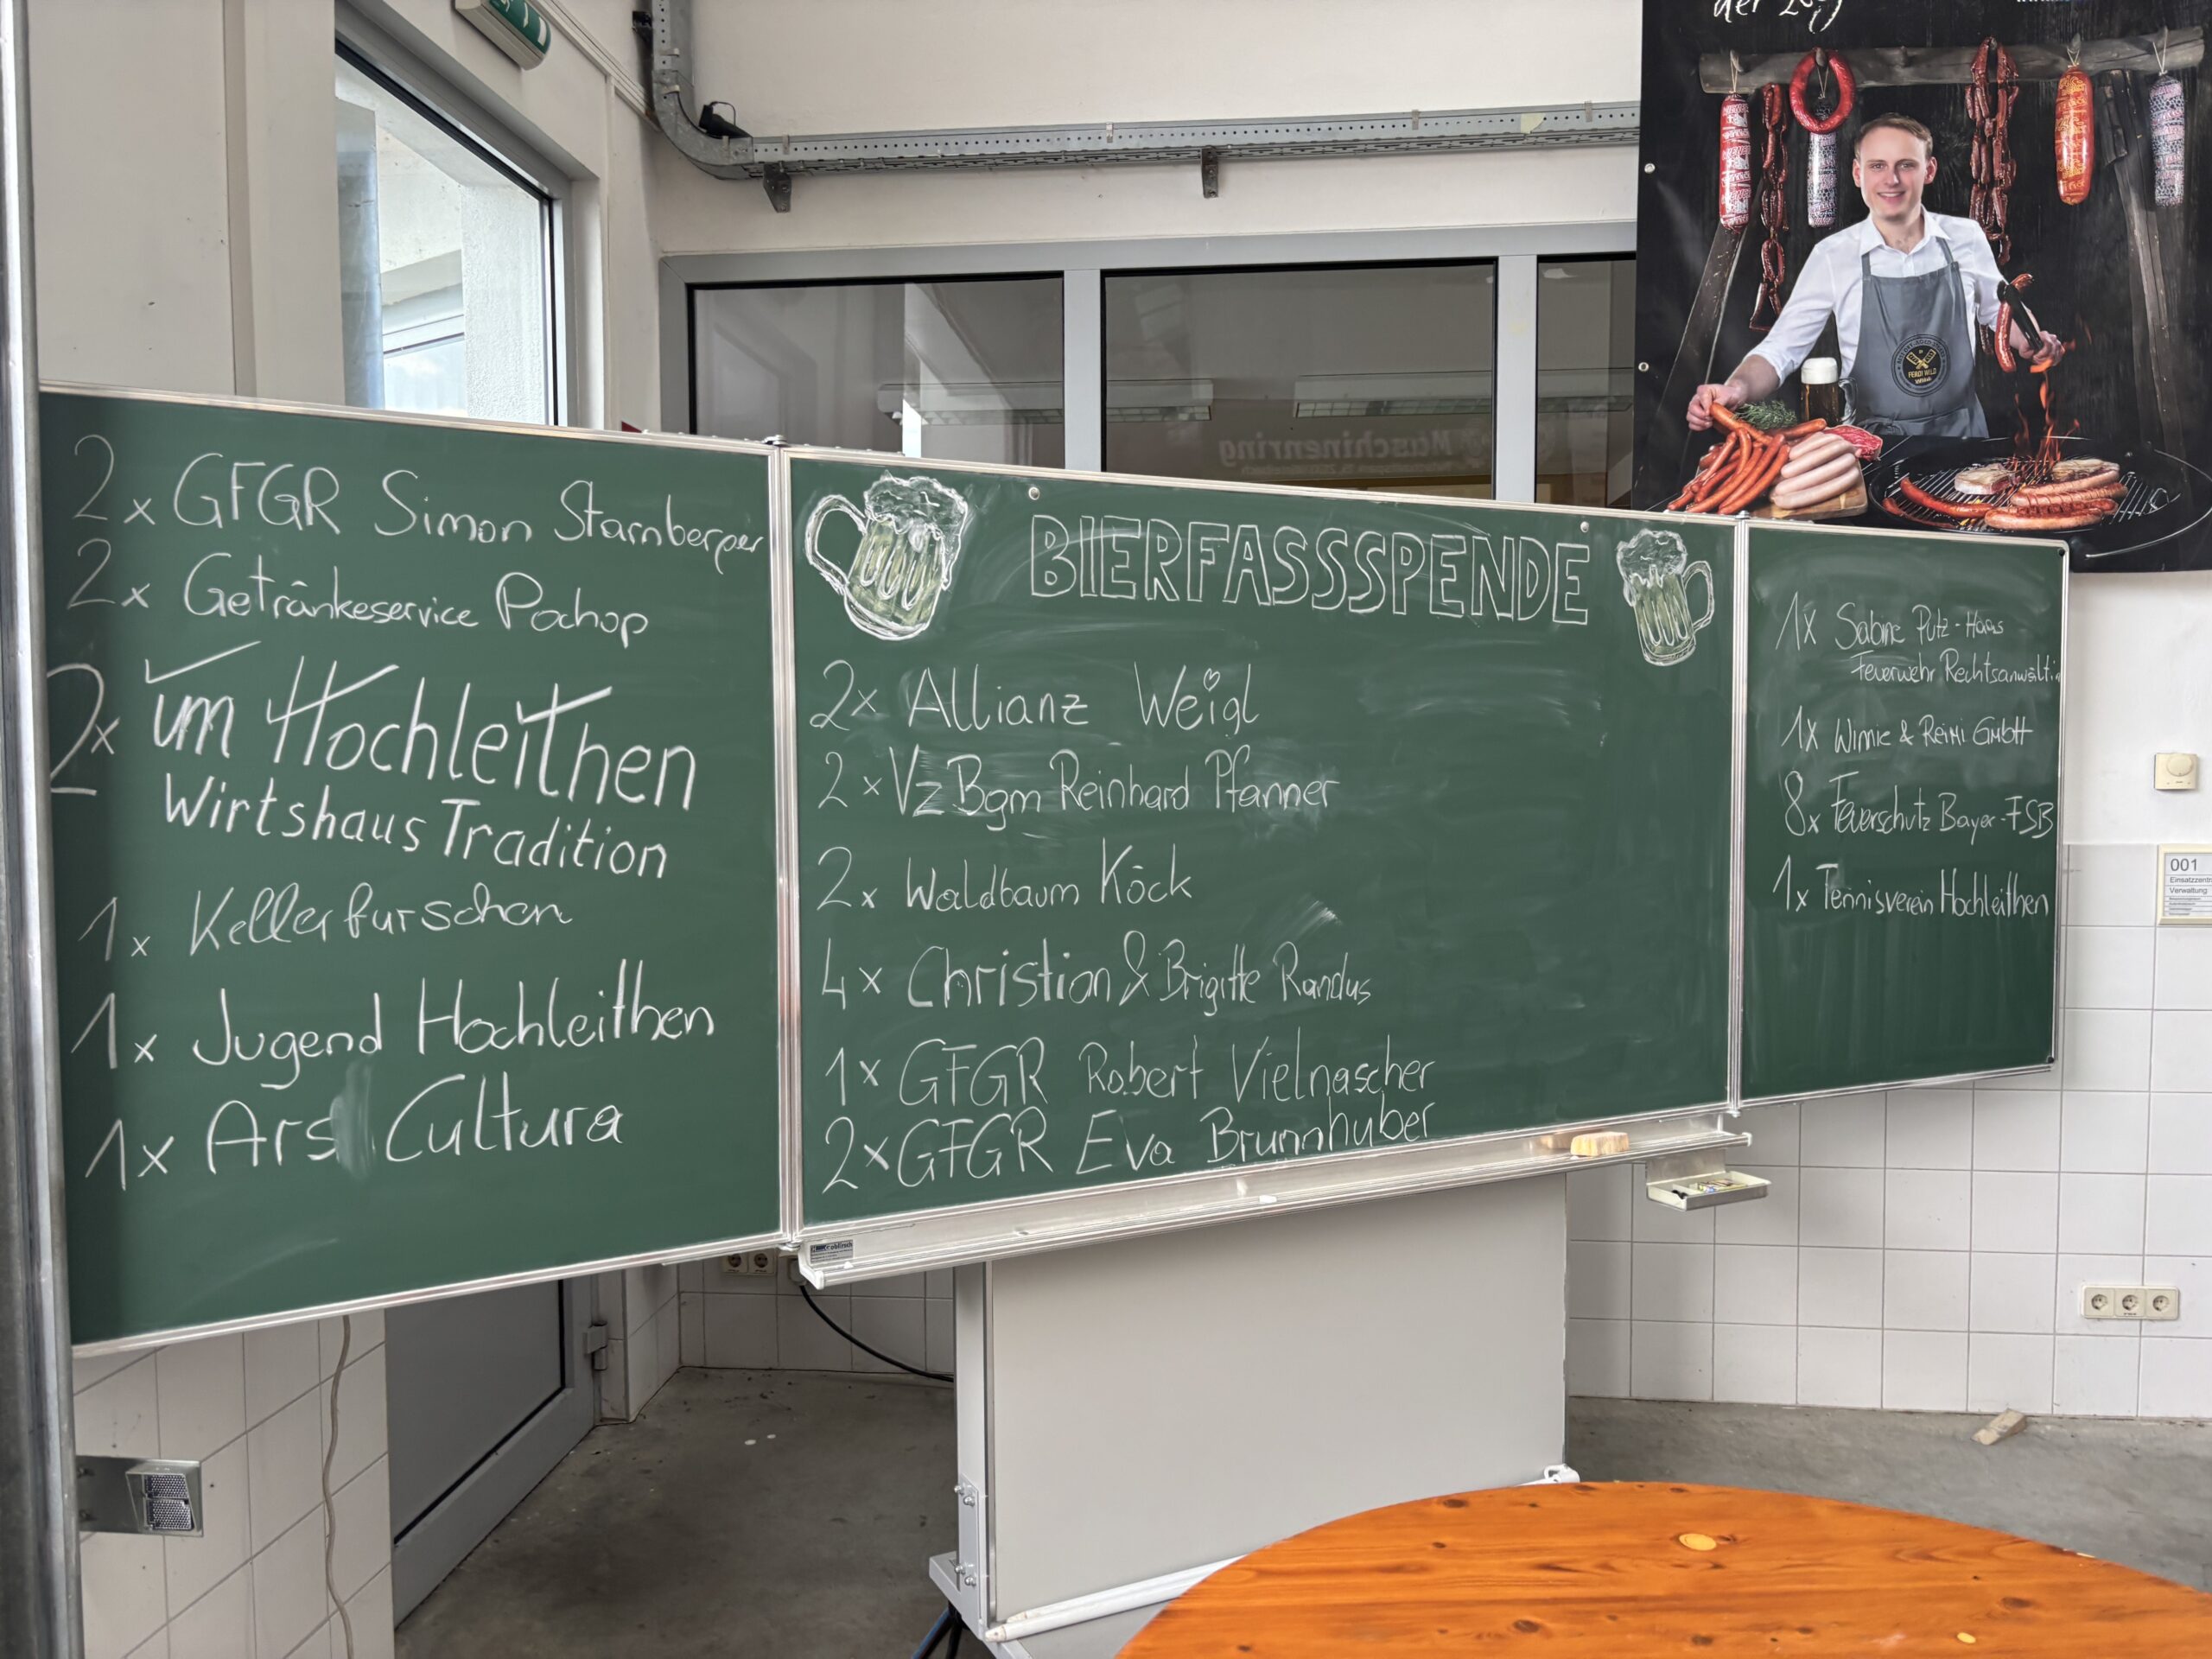 der
2x GFGR Simon Starnberger
2x Getränkeservice Pochop
2x im Hochleithen
Wirtshaus Tradition
1x Kellerburschen
1x Jugend Hochleithen
1x Ars Cultura
BIERFASSSPENDE
2x Allianz Weigl
2x VzBgm Reinhard Pfanner
2x Waldbaum Köck
4x Christian & Brigitte Randus
1x GFGR Robert Vielnascher
2x GFGR Eva Brunnhuber
1x Sabine Putz-Haas
Feuerwehr Rechtsanwältin
1x Wimic & Reimi GmbH
8x Feuerschutz Bayer-FSB
1x Tennisverein Hochleithen
Maschinenring
FERDI WILD
001
Einsatzzentr
Verwaltung